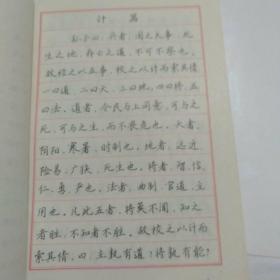 计篇
孙子曰：兵者，国之大事，死
生之地，存亡之道，不可不察也。
故校之以五事，校之以计而索其情：
一曰道，二曰天，三曰地，四曰将，五
曰法。道者，令民与上同意，可与之
死，可与之生，而不畏危也。天者，
阴阳、寒暑、时制也。地者，远近、
险易、广狭、死生也。将者，智、信、
仁、勇、严也。法者，曲制、官道、主
用也。凡此五者，将莫不闻，知之
者胜，不知者不胜。故校之以计而
索其情，曰：主孰有道？将孰有能？